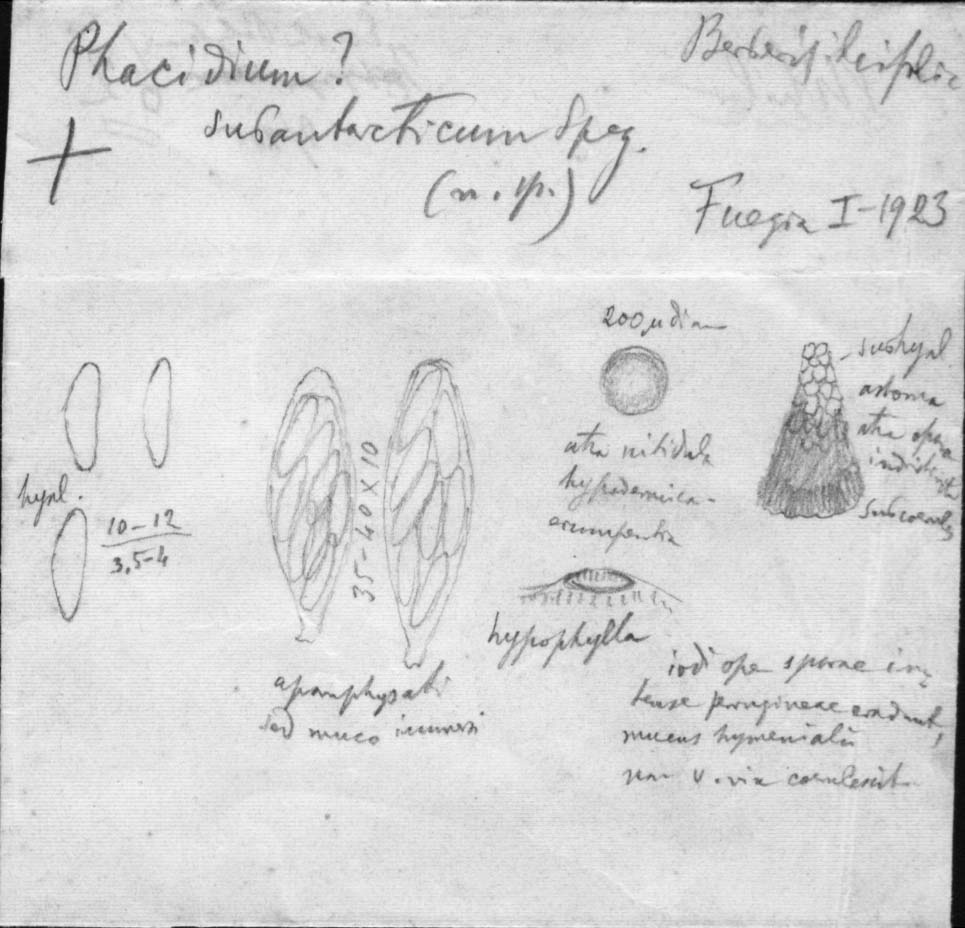 Phacidium?
subantarcticum Speg.
(n. sp.)
Berberis ilicifolia
Fuegia I-1923
hyal.
10-12
3,5-4
35-40 x 10
aparaphysati
sed muco immersi
200 µ diam
atra nitidula
hypodermica-
erumpentia
hypophylla
subhyal
astoma
atra opaca
indistincta
iodi ope sporae in
tense ferrugineae evadunt,
mucus hymenialis
non v. vix coerulescit